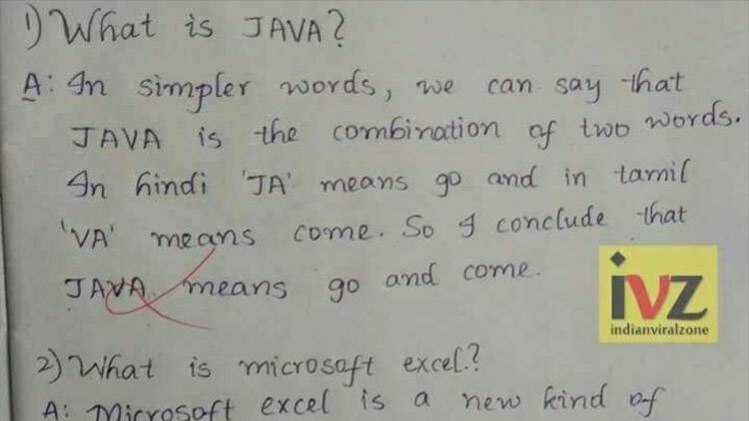 1) What is JAVA?
A: In simpler words, we can say that
JAVA is the combination of two words.
In hindi 'JA' means go and in tamil
'VA' means come. So I conclude that
JAVA means go and come.
ivz
indianviralzone
2) What is microsoft excel.?
A: Microsoft excel is a new kind of